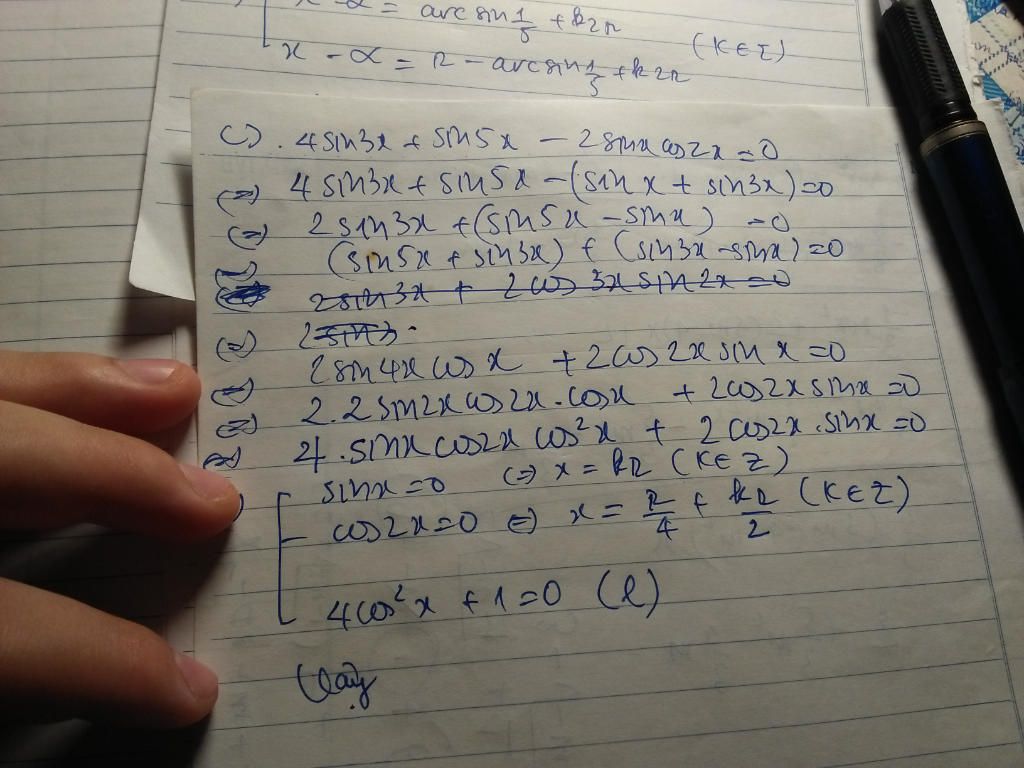 x - α = arcsin 1/5 + k2π
x - α = π - arcsin 1/5 + k2π (K∈Z)
c). 4sin3x + sin5x - 2sinxcos2x = 0
(=) 4sin3x + sin5x - (sinx + sin3x) = 0
(=) 2sin3x + (sin5x - sinx) = 0
(sin5x + sin3x) + (sin3x - sinx) = 0
2sin3x + 2cos3x sin2x = 0
(=) 2sin3
2sin4x cosx + 2cos2x sinx = 0
(=) 2.2sin2xcos2x.cosx + 2cos2x sinx = 0
(=) 4.sinxcos2x cos²x + 2cos2x.sinx = 0
(=) sinx = 0 (=) x = kπ (K∈Z)
cos2x = 0 (=) x = π/4 + kπ/2 (K∈Z)
4cos²x + 1 = 0 (l)
Vậy